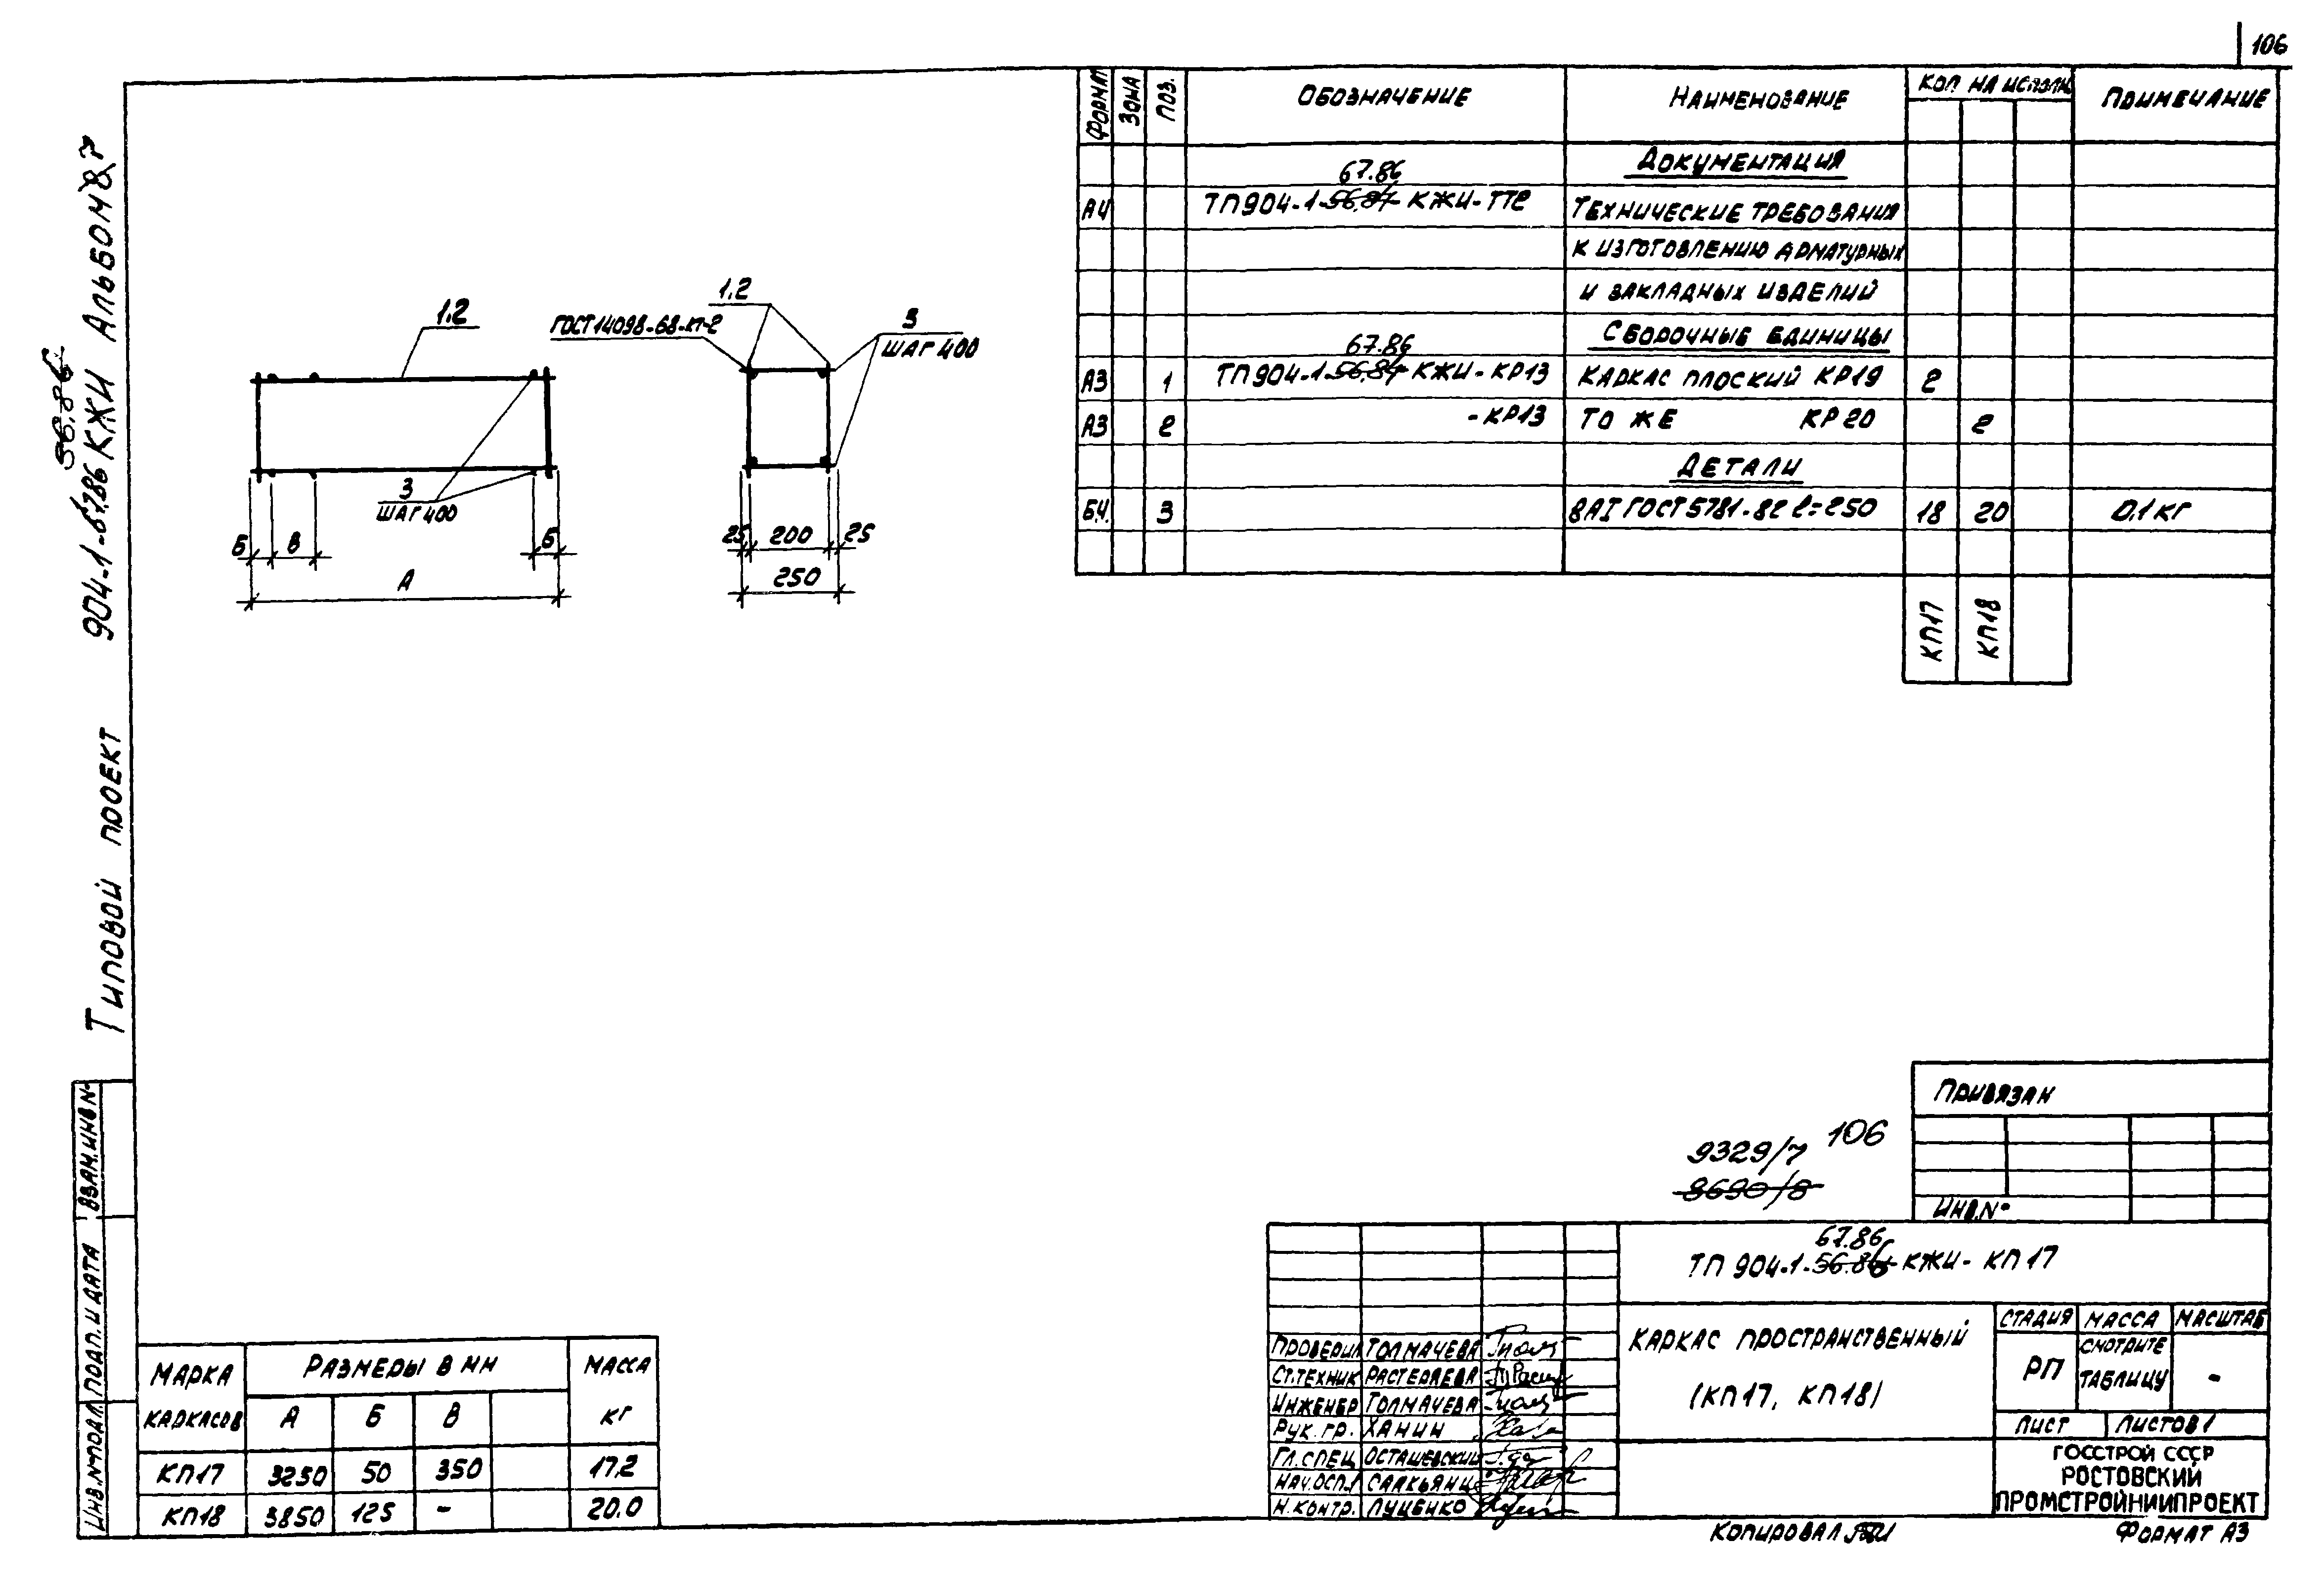 106
Типовой проект 904-1-67.86 КЖИ Альбом 7
56.86
Формат Зона Поз. Обозначение Наименование Кол на исполн. Примечание
Документация
67.86
А4 ТП904-1-56.84 КЖИ-ТТ2 Технические требования
к изготовлению арматурных
и закладных изделий
Сборочные единицы
67.86
А3 1 ТП904-1-56.84 КЖИ-КР13 Каркас плоский КР19 2
А3 2 -КР13 То же КР20 2
Детали
Б.Ч. 3 8АI ГОСТ 5781-82 l=250 18 20 0.1 кг
КП17 КП18
1.2
3
шаг 400
Б В Б
А
1.2
ГОСТ 14098-68-КТ-2
3
шаг 400
25 200 25
250
Марка каркасов Размеры в мм Масса кг
А Б В
КП17 3250 50 350 17,2
КП18 3850 125 - 20.0
Привязан
Инв.№
9329/7 106
8690/8
67.86
ТП 904-1-56.86 КЖИ-КП17
Каркас пространственный
(КП17, КП18)
Стадия Масса Масштаб
РП Смотрите таблицу -
Лист Листов 1
ГОССТРОЙ СССР
РОСТОВСКИЙ
ПРОМСТРОЙНИИПРОЕКТ
Проверил Толмачева
Ст.техник Растеряева
Инженер Толмачева
Рук. гр. Ханин
Гл.спец Осташевский
Нач.ОСП1 Саакьянц
Н.контр. Луценко
Копировал
Формат А3
Взам.инв№
Подп. и дата
Инв.№подл.